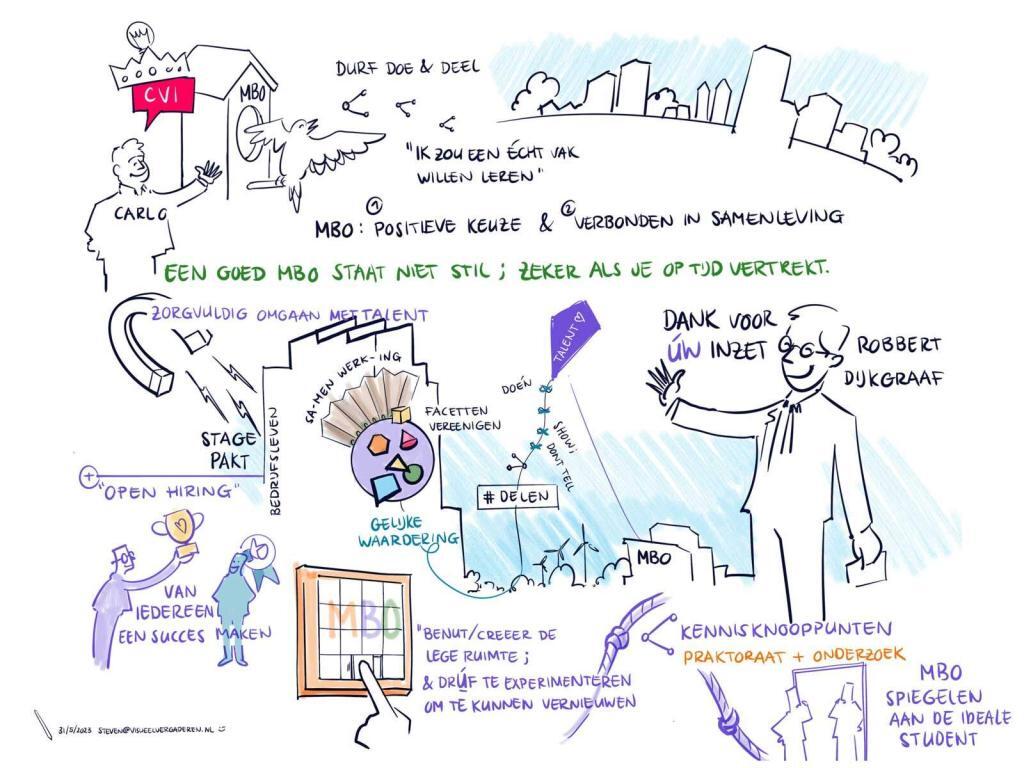 CVI
MBO
CARLO
DURF DOE & DEEL
"IK ZOU EEN ÉCHT VAK
WILLEN LEREN"
MBO: ① POSITIEVE KEUZE & ② VERBONDEN IN SAMENLEVING
EEN GOED MBO STAAT NIET STIL; ZEKER ALS JE OP TIJD VERTREKT.
ZORGVULDIG OMGAAN MET TALENT
STAGE
PAKT
BEDRIJFSLEVEN
+ "OPEN HIRING"
SA-MEN WERK-ING
FACETTEN
VEREENIGEN
GELIJKE
WAARDERING
TALENT
DOEN
SHOW;
DON'T TELL
# DELEN
MBO
DANK VOOR
ÚW INZET
ROBBERT
DIJKGRAAF
VAN
IEDEREEN
EEN SUCCES MAKEN
MBO
"BENUT/CREEER DE
LEGE RUIMTE;
& DRÚF TE EXPERIMENTEREN
OM TE KUNNEN VERNIEUWEN
KENNISKNOOPPUNTEN
PRAKTORAAT + ONDERZOEK
MBO
SPIEGELEN
AAN DE IDEALE
STUDENT
31/5/2023 STEVEN@VISUEELVERGADEREN.NL